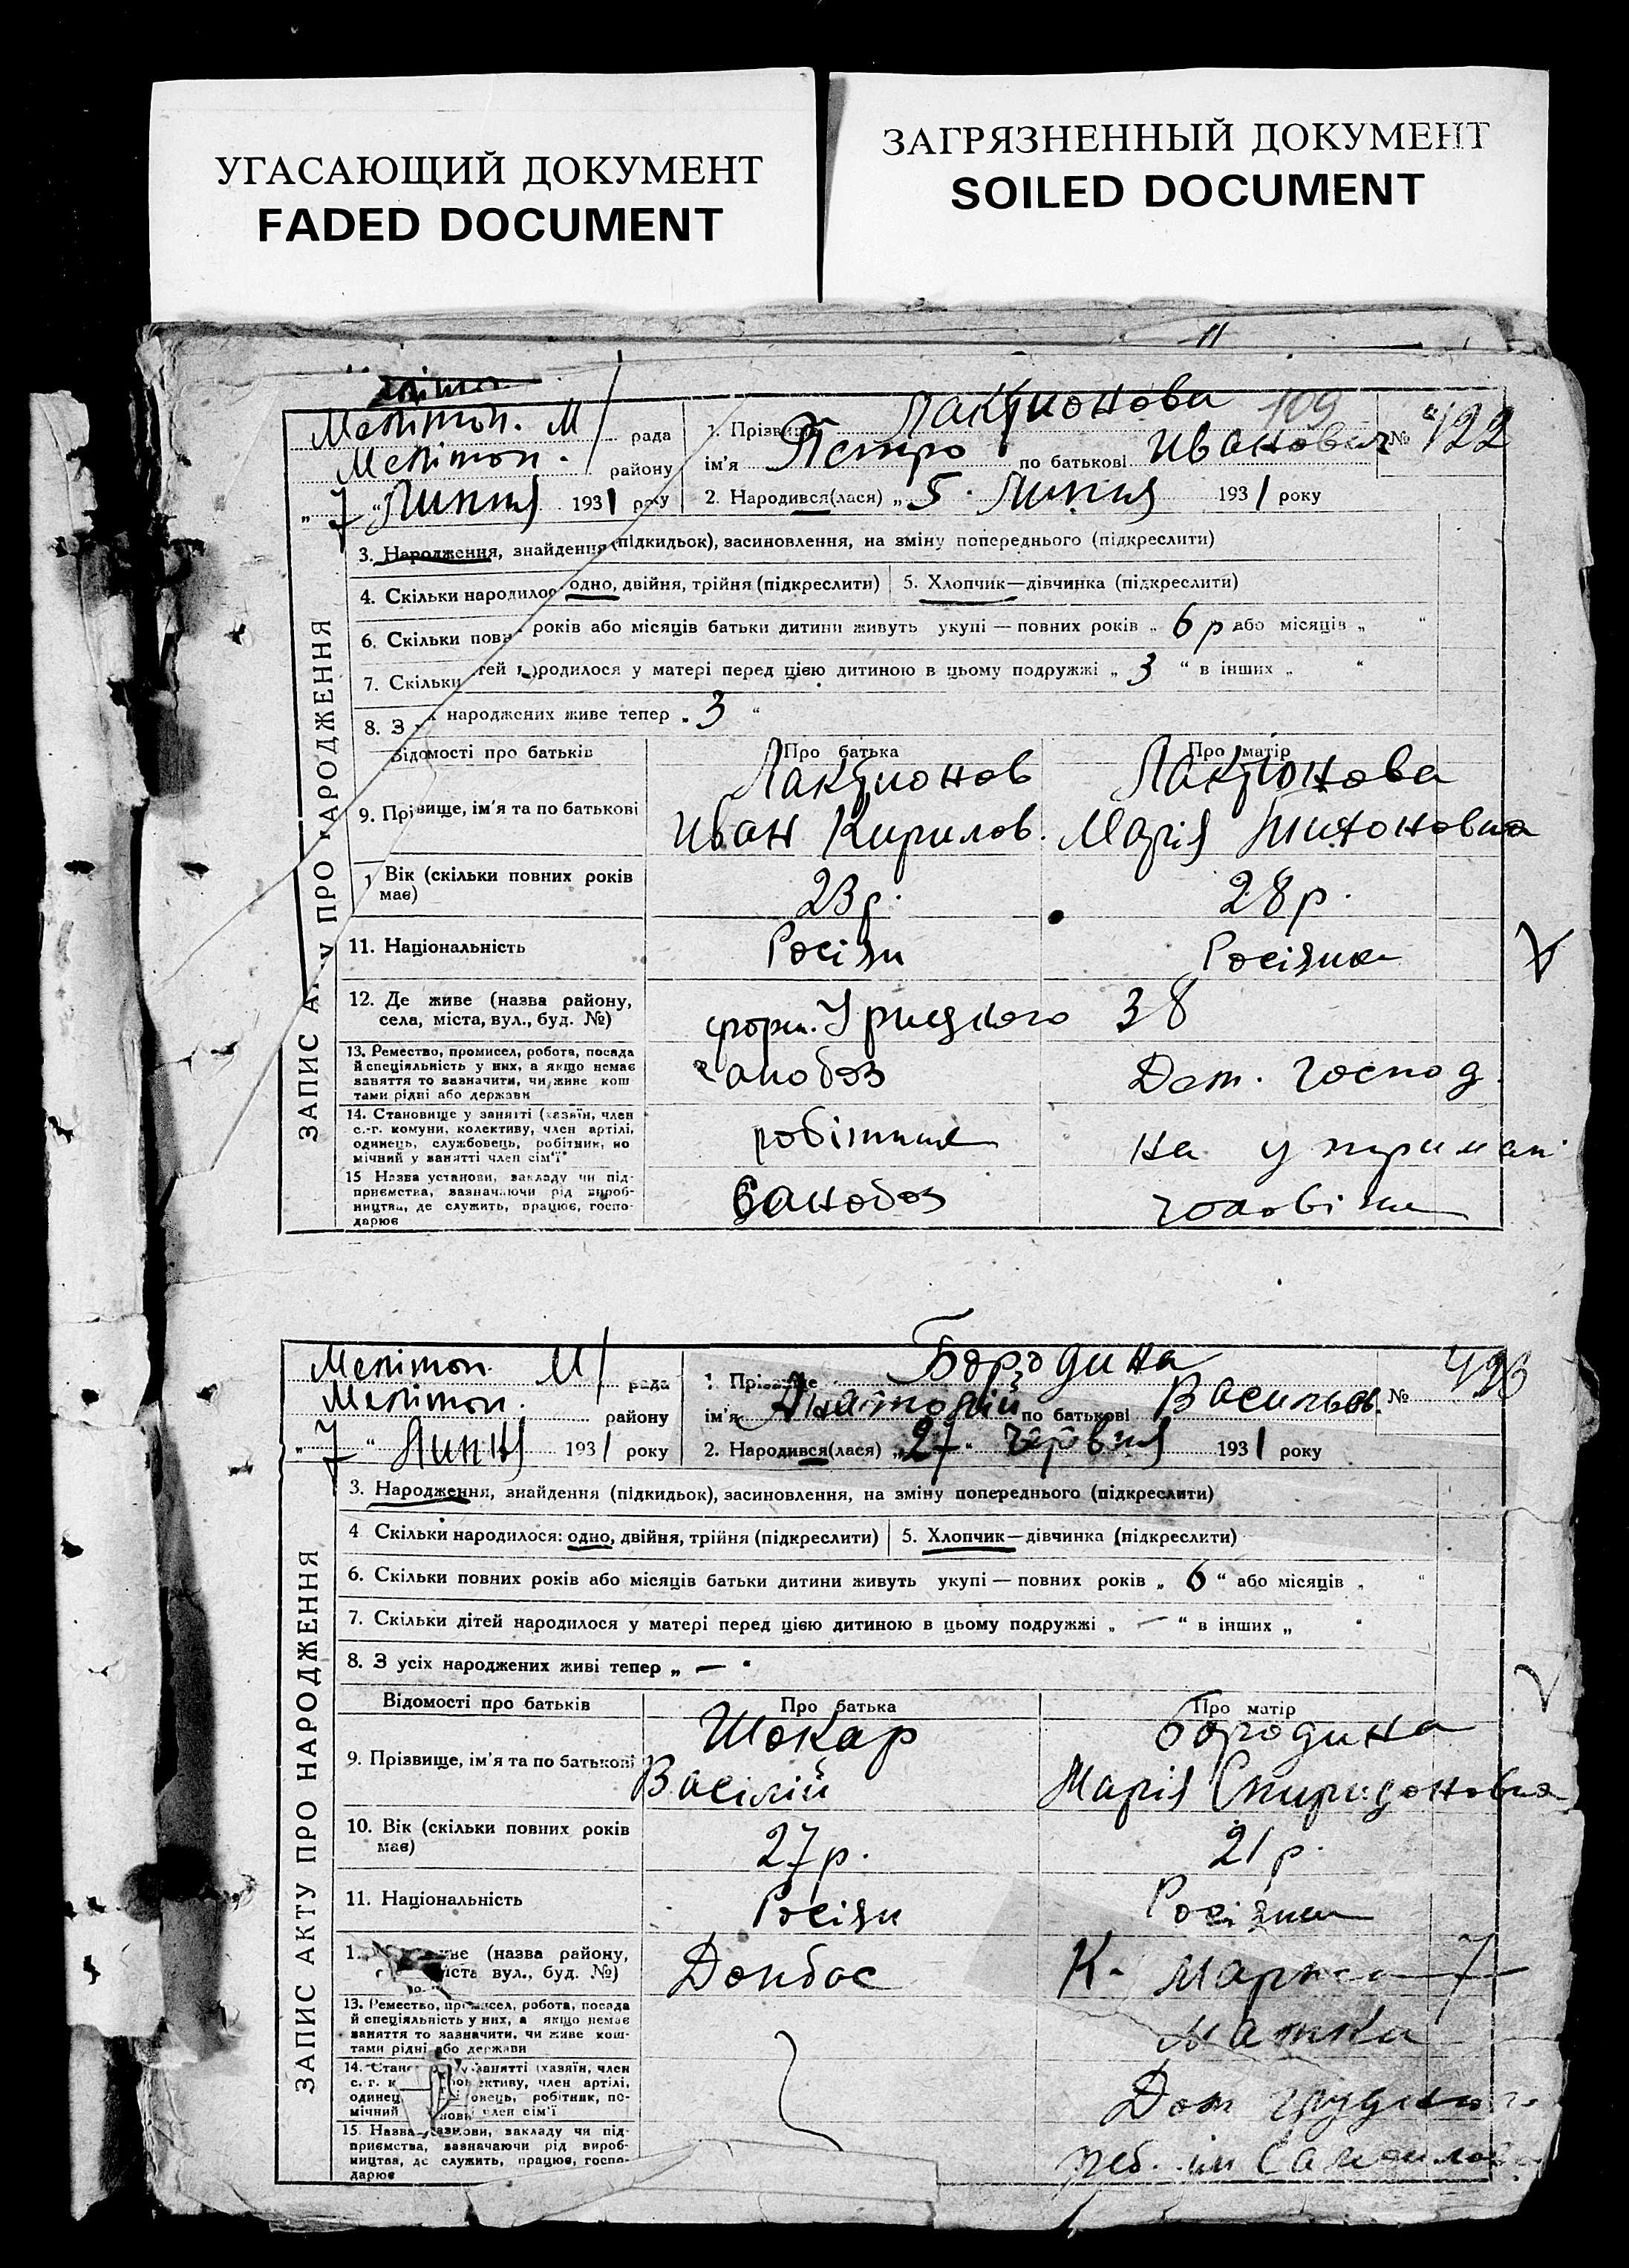 УГАСАЮЩИЙ ДОКУМЕНТ
FADED DOCUMENT
ЗАГРЯЗНЕННЫЙ ДОКУМЕНТ
SOILED DOCUMENT
11
Меліт
Меліттоп. М/ рада
Меліттоп. району
„7“ Липня 1931 року
1. Прізвище Лактионова 109
ім'я Пстро по батькові Иванович № 422
2. Народився(лася) „5 Липня 1931 року
ЗАПИС А У ПРО НАРОДЖЕННЯ
3. Народження, знайдення (підкидьок), засиновлення, на зміну попереднього (підкреслити)
4. Скільки народилос одно, двійня, трійня (підкреслити) 5. Хлопчик—дівчинка (підкреслити)
6. Скільки повн років або місяців батьки дитини живуть укупі — повних років „ 6 р або місяців „ “
7. Скільки тей народилося у матері перед цією дитиною в цьому подружжі „ 3 “ в інших „ “
8. З х народжених живе тепер „ 3 “
Відомості про батьків Про батька Про матір
9. Прізвище, ім'я та по батькові Лактионов Иван Кирилов. Лактионова Марія
Вік (скільки повних років має) 23 р. 28 р.
11. Національність Росіян Росіянка
12. Де живе (назва району, села, міста, вул., буд. №) Урицкого 38
13. Ремество, промисел, робота, посада й спеціяльність у них, а якщо немає заняття то зазначити, чи живе коштами рідні або держави Дом. господ.
14. Становище у занятті (хазяїн, член с.-г. комуни, колективу, член артілі, одинець, службовець, робітник, помічний у занятті член сім'ї робітник на утриман
15 Назва установи, закладу чи підприємства, зазначаючи рід виробництва, де служить, працює, господарює чоловіка
Меліттоп. М/ рада
Меліттоп. району
„7“ Липня 1931 року
1. Прізвище Бородина
ім'я Анатолій по батькові Васильов. № 423
2. Народився(лася) „27“ червня 1931 року
ЗАПИС АКТУ ПРО НАРОДЖЕННЯ
3. Народження, знайдення (підкидьок), засиновлення, на зміну попереднього (підкреслити)
4 Скільки народилося: одно, двійня, трійня (підкреслити) 5. Хлопчик—дівчинка (підкреслити)
6. Скільки повних років або місяців батьки дитини живуть укупі — повних років „ 6 “ або місяців „ “
7. Скільки дітей народилося у матері перед цією дитиною в цьому подружжі „ — “ в інших „ “
8. З усіх народжених живі тепер „ — “
Відомості про батьків Про батька Про матір
9. Прізвище, ім'я та по батькові Шокар Васілій Бородина Марія Спиридоновна
10. Вік (скільки повних років має) 27 р. 21 р.
11. Національність Росіян Росіянка
(назва району, вул., буд. №) Донбас К. Маркса 7
13. Ремество, промисел, робота, посада й спеціяльність у них, а якщо немає заняття то зазначити, чи живе коштами рідні або держави
14. занятті (хазяїн, член с. г. член артілі, робітник, помічний член сім'ї Дом грудного
15. Назва установи, закладу чи підприємства, зазначаючи рід виробництва, де служить, працює, господарює реб. ім